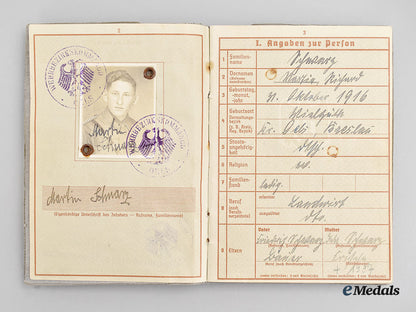 2
WEHRBEZIRKSKOMMANDO
Martin
Schwarz
WEHRBEZIRKSKOMMANDO
Martin Schwarz
(Eigenhändige Unterschrift des Inhabers — Rufname, Familienname)
3
I. Angaben zur Person
1 Familien-
name
Schwarz
2 Vornamen
(Rufname
unterstreichen)
Martin Richard
3 Geburtstag,
-monat,
-jahr
31. Oktober 1916
4 Geburtsort
Verwaltungs-
bezirk
Kr. Oels, Breslau
5 Staats-
angehörig-
keit
6 Religion
ev.
7 Familien-
stand
ledig.
8 Beruf
(nach
Berufs-
verzeichnis)
erlernter
Landwirt
ausgeübter
dto.
9 Eltern
Vater
Mutter
Schwarz
Schwarz
Bauer
† 1937
eMedals